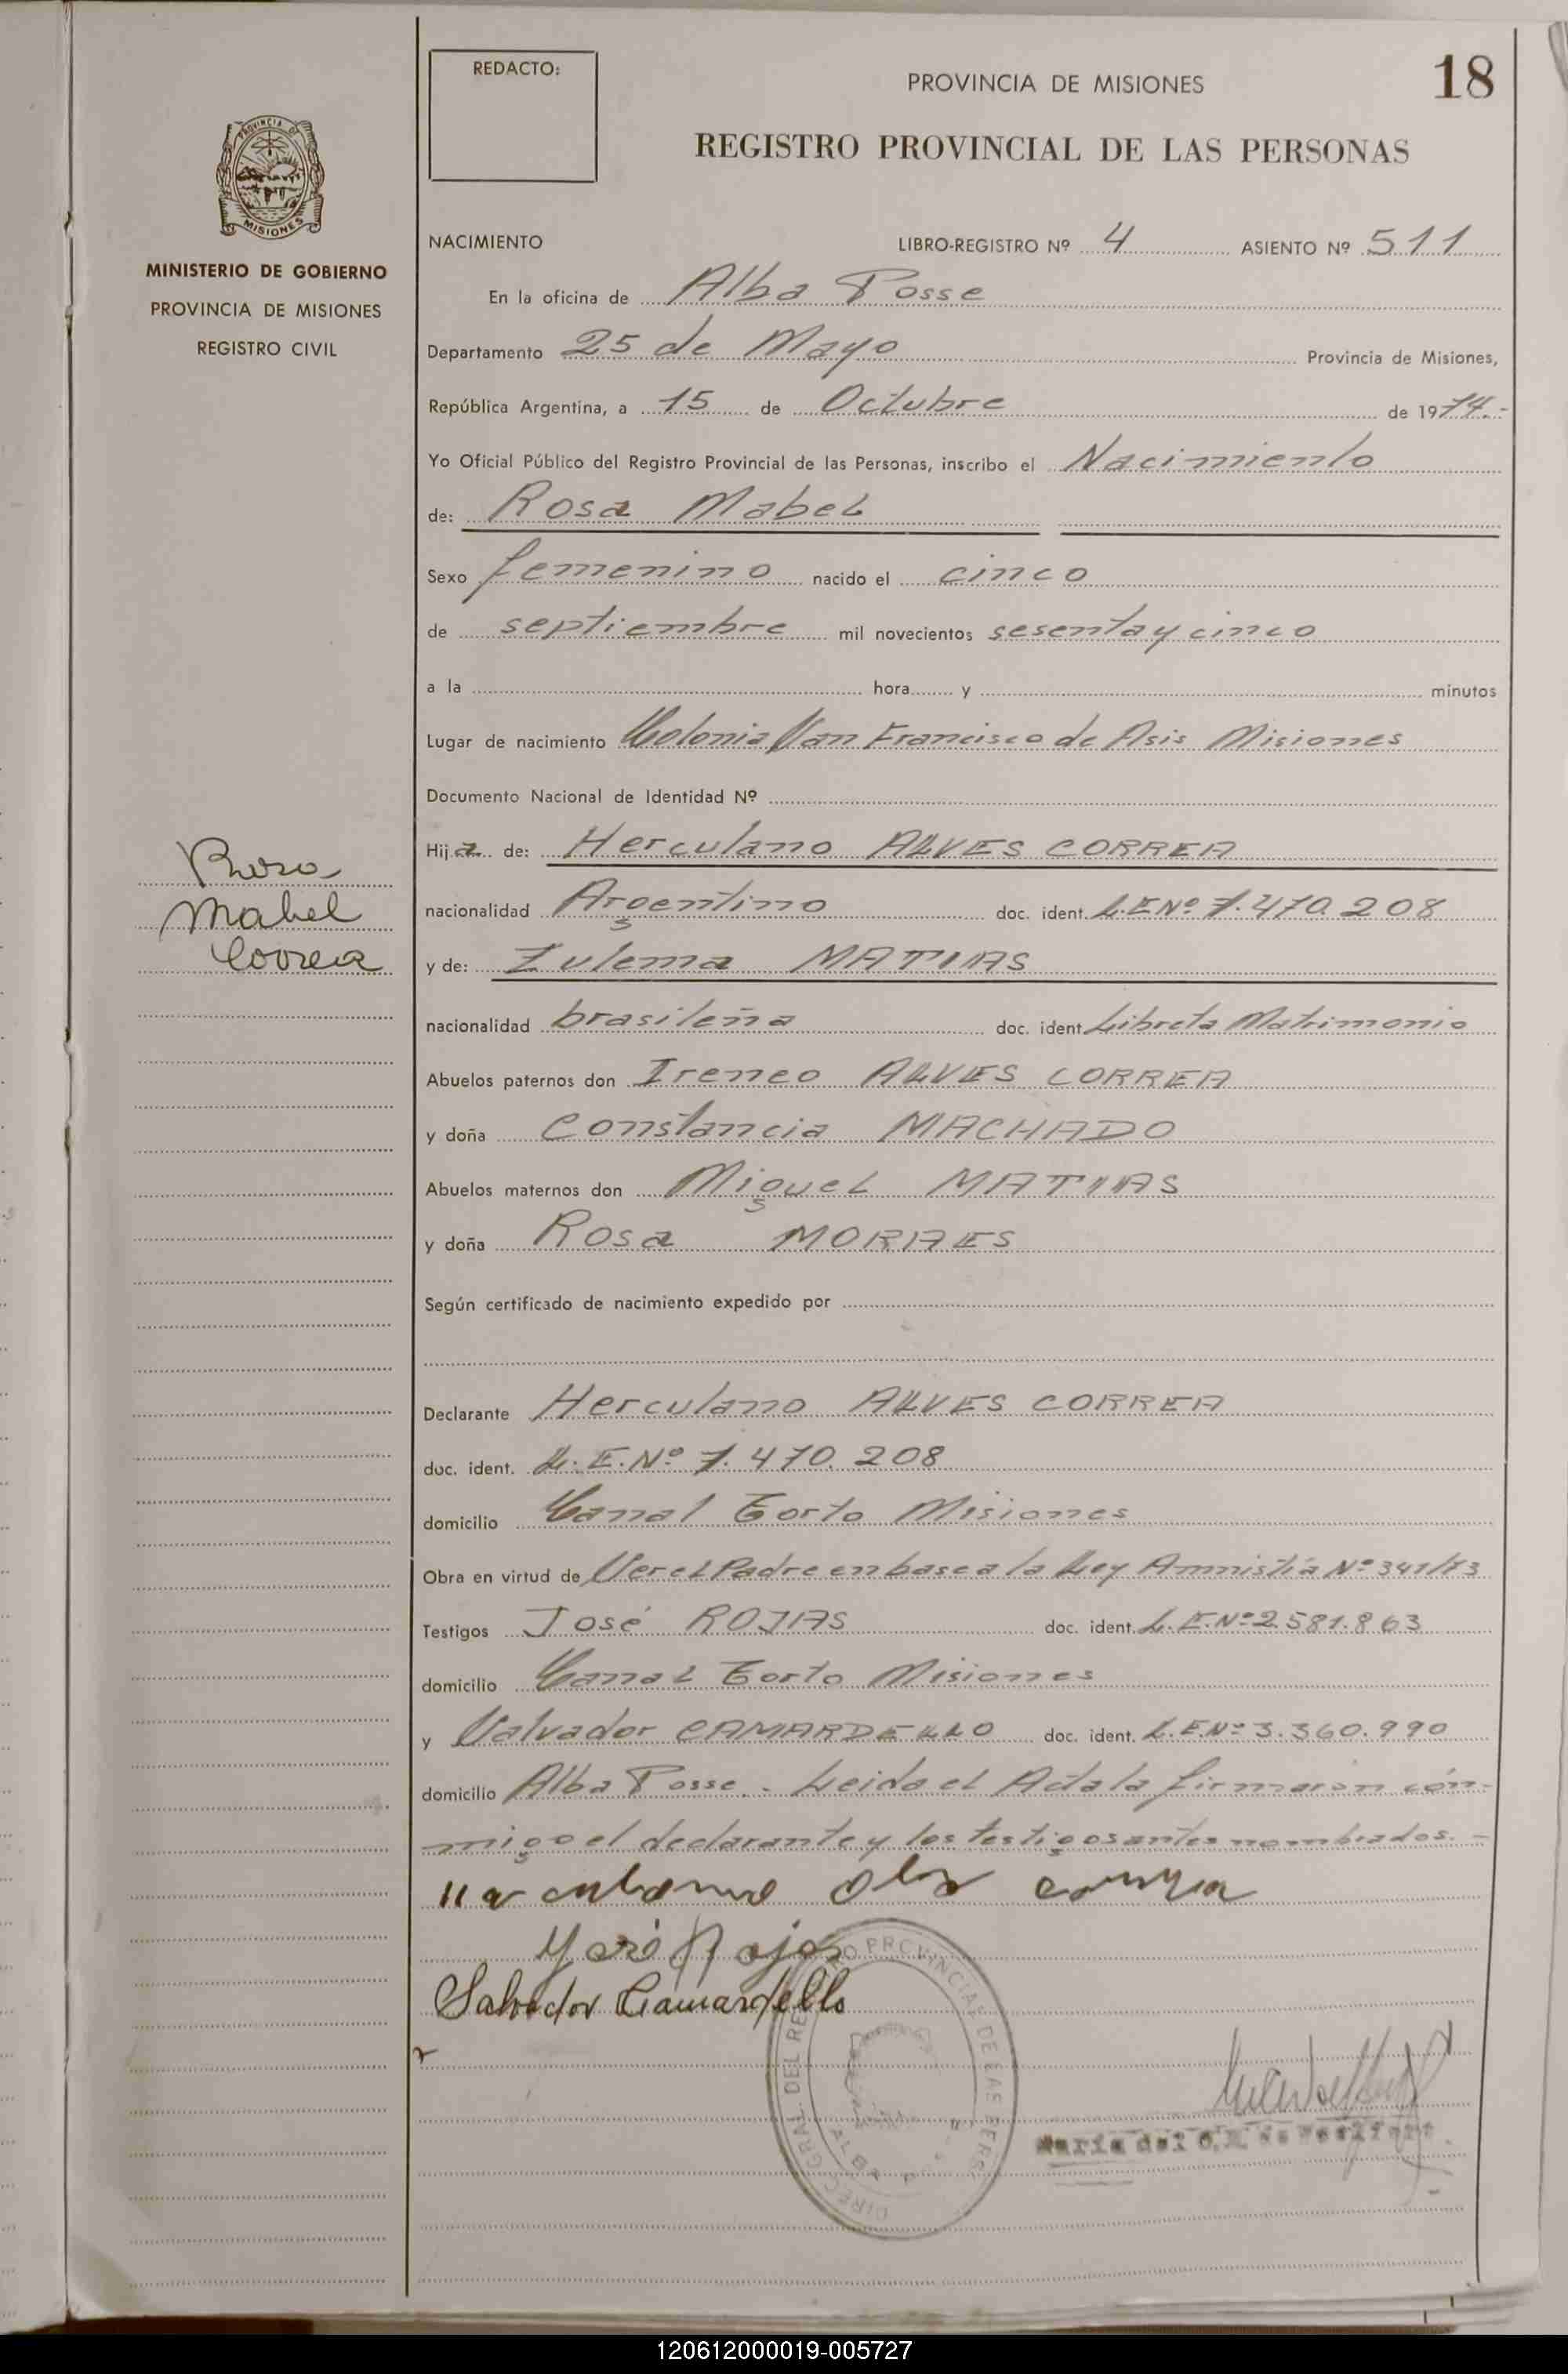 REDACTO:
PROVINCIA DE MISIONES
18
REGISTRO PROVINCIAL DE LAS PERSONAS
PROVINCIA DE
MISIONES
MINISTERIO DE GOBIERNO
PROVINCIA DE MISIONES
REGISTRO CIVIL
NACIMIENTO LIBRO-REGISTRO Nº 4 ASIENTO Nº 511
En la oficina de Alba Posse
Departamento 25 de Mayo Provincia de Misiones,
República Argentina, a 15 de Octubre de 1974.-
Yo Oficial Público del Registro Provincial de las Personas, inscribo el Nacimiento
de: Rosa Mabel
Sexo femenino nacido el cinco
de septiembre mil novecientos sesenta y cinco
a la hora y minutos
Lugar de nacimiento Colonia San Francisco de Asis Misiones
Documento Nacional de Identidad Nº
Hija de: Herculano ALVES CORREA
Rosa
Mabel
Correa
nacionalidad Argentino doc. ident. L.E Nº 7.470.208
y de: Zulema MATIAS
nacionalidad brasileña doc. ident. Libreta Matrimonio
Abuelos paternos don Ireneo ALVES CORREA
y doña Constancia MACHADO
Abuelos maternos don Miguel MATIAS
y doña Rosa MORAES
Según certificado de nacimiento expedido por
Declarante Herculano ALVES CORREA
doc. ident. L.E.Nº 7.470.208
domicilio Canal Torto Misiones
Obra en virtud de Ser el Padre en base a la Ley Amnistía Nº 341/73
Testigos José ROJAS doc. ident. L.E.Nº 2.581.863
domicilio Canal Torto Misiones
y Salvador CAMARDELLO doc. ident. L.E.Nº 3.360.990
domicilio Alba Posse.- Leida el Acta la firmaron con-
migo el declarante y los testigos antes nombrados.-
José Rojas
Salvador Camardello
PROVINCIAL DE LAS PERS
DEL RE
María del
120612000019-005727